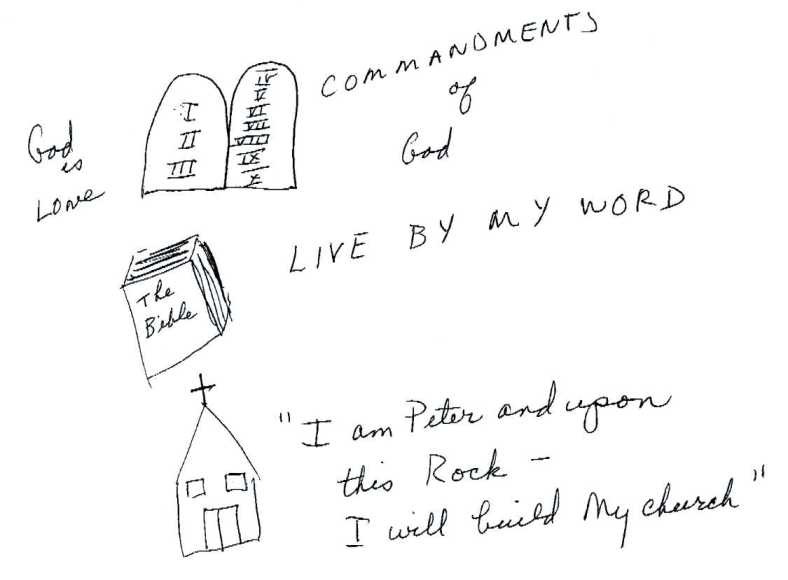 COMMANDMENTS
of
God
God
is
LOVE
I
II
III
IV
V
VI
VII
VIII
IX
X
LIVE BY MY WORD
The
Bible
"I am Peter and upon
this Rock –
I will build My church"